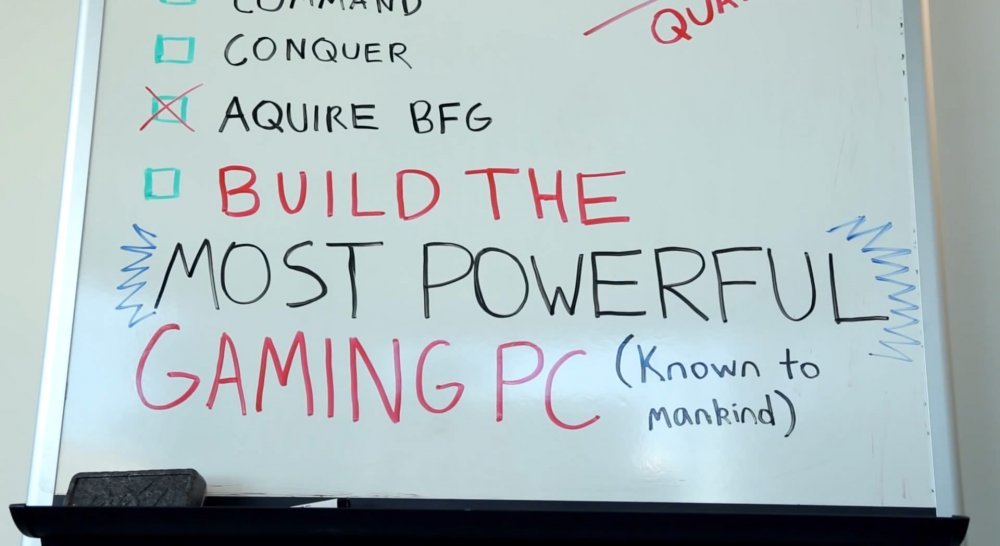 COMMAND
CONQUER
AQUIRE BFG
BUILD THE
MOST POWERFUL
GAMING PC (Known to
mankind)